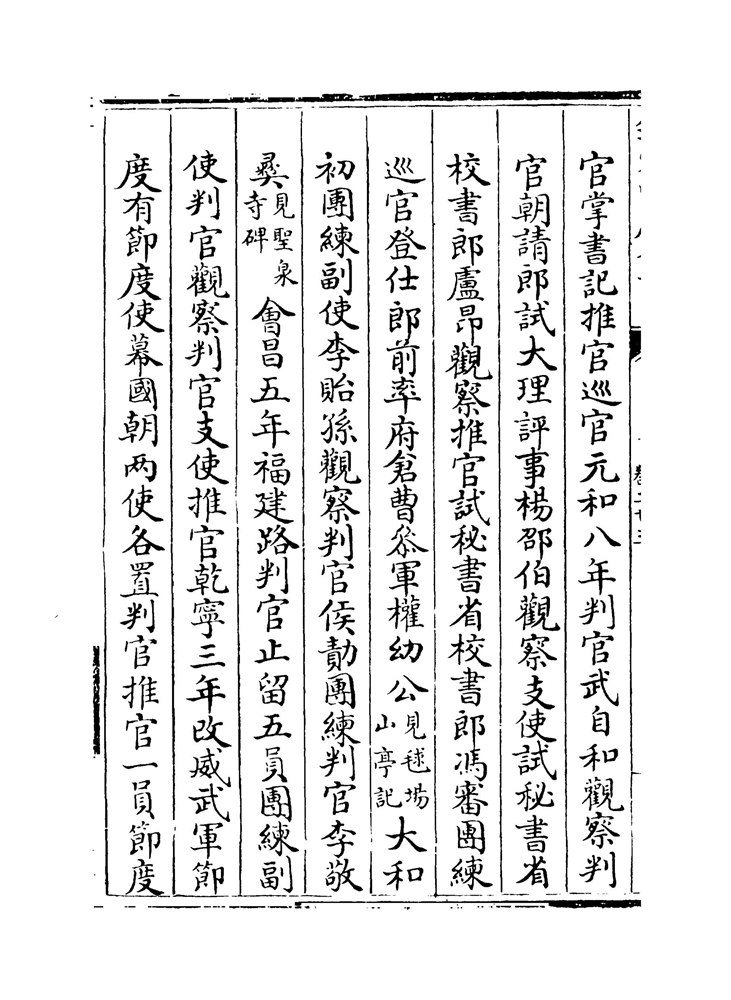 官掌書記推官巡官元和八年判官武自和觀察判
官朝請郎試大理評事楊邵伯觀察支使試秘書省
校書郎盧昂觀察推官試秘書省校書郎馮審團練
巡官登仕郎前率府倉曹叅軍權幼公見毬場山亭記大和
初團練副使李貽孫觀察判官侯勣團練判官李敬
彛見聖泉寺碑會昌五年福建路判官止留五員團練副
使判官觀察判官支使推官乾寧三年改威武軍節
度有節度使幕國朝两使各置判官推官一員節度